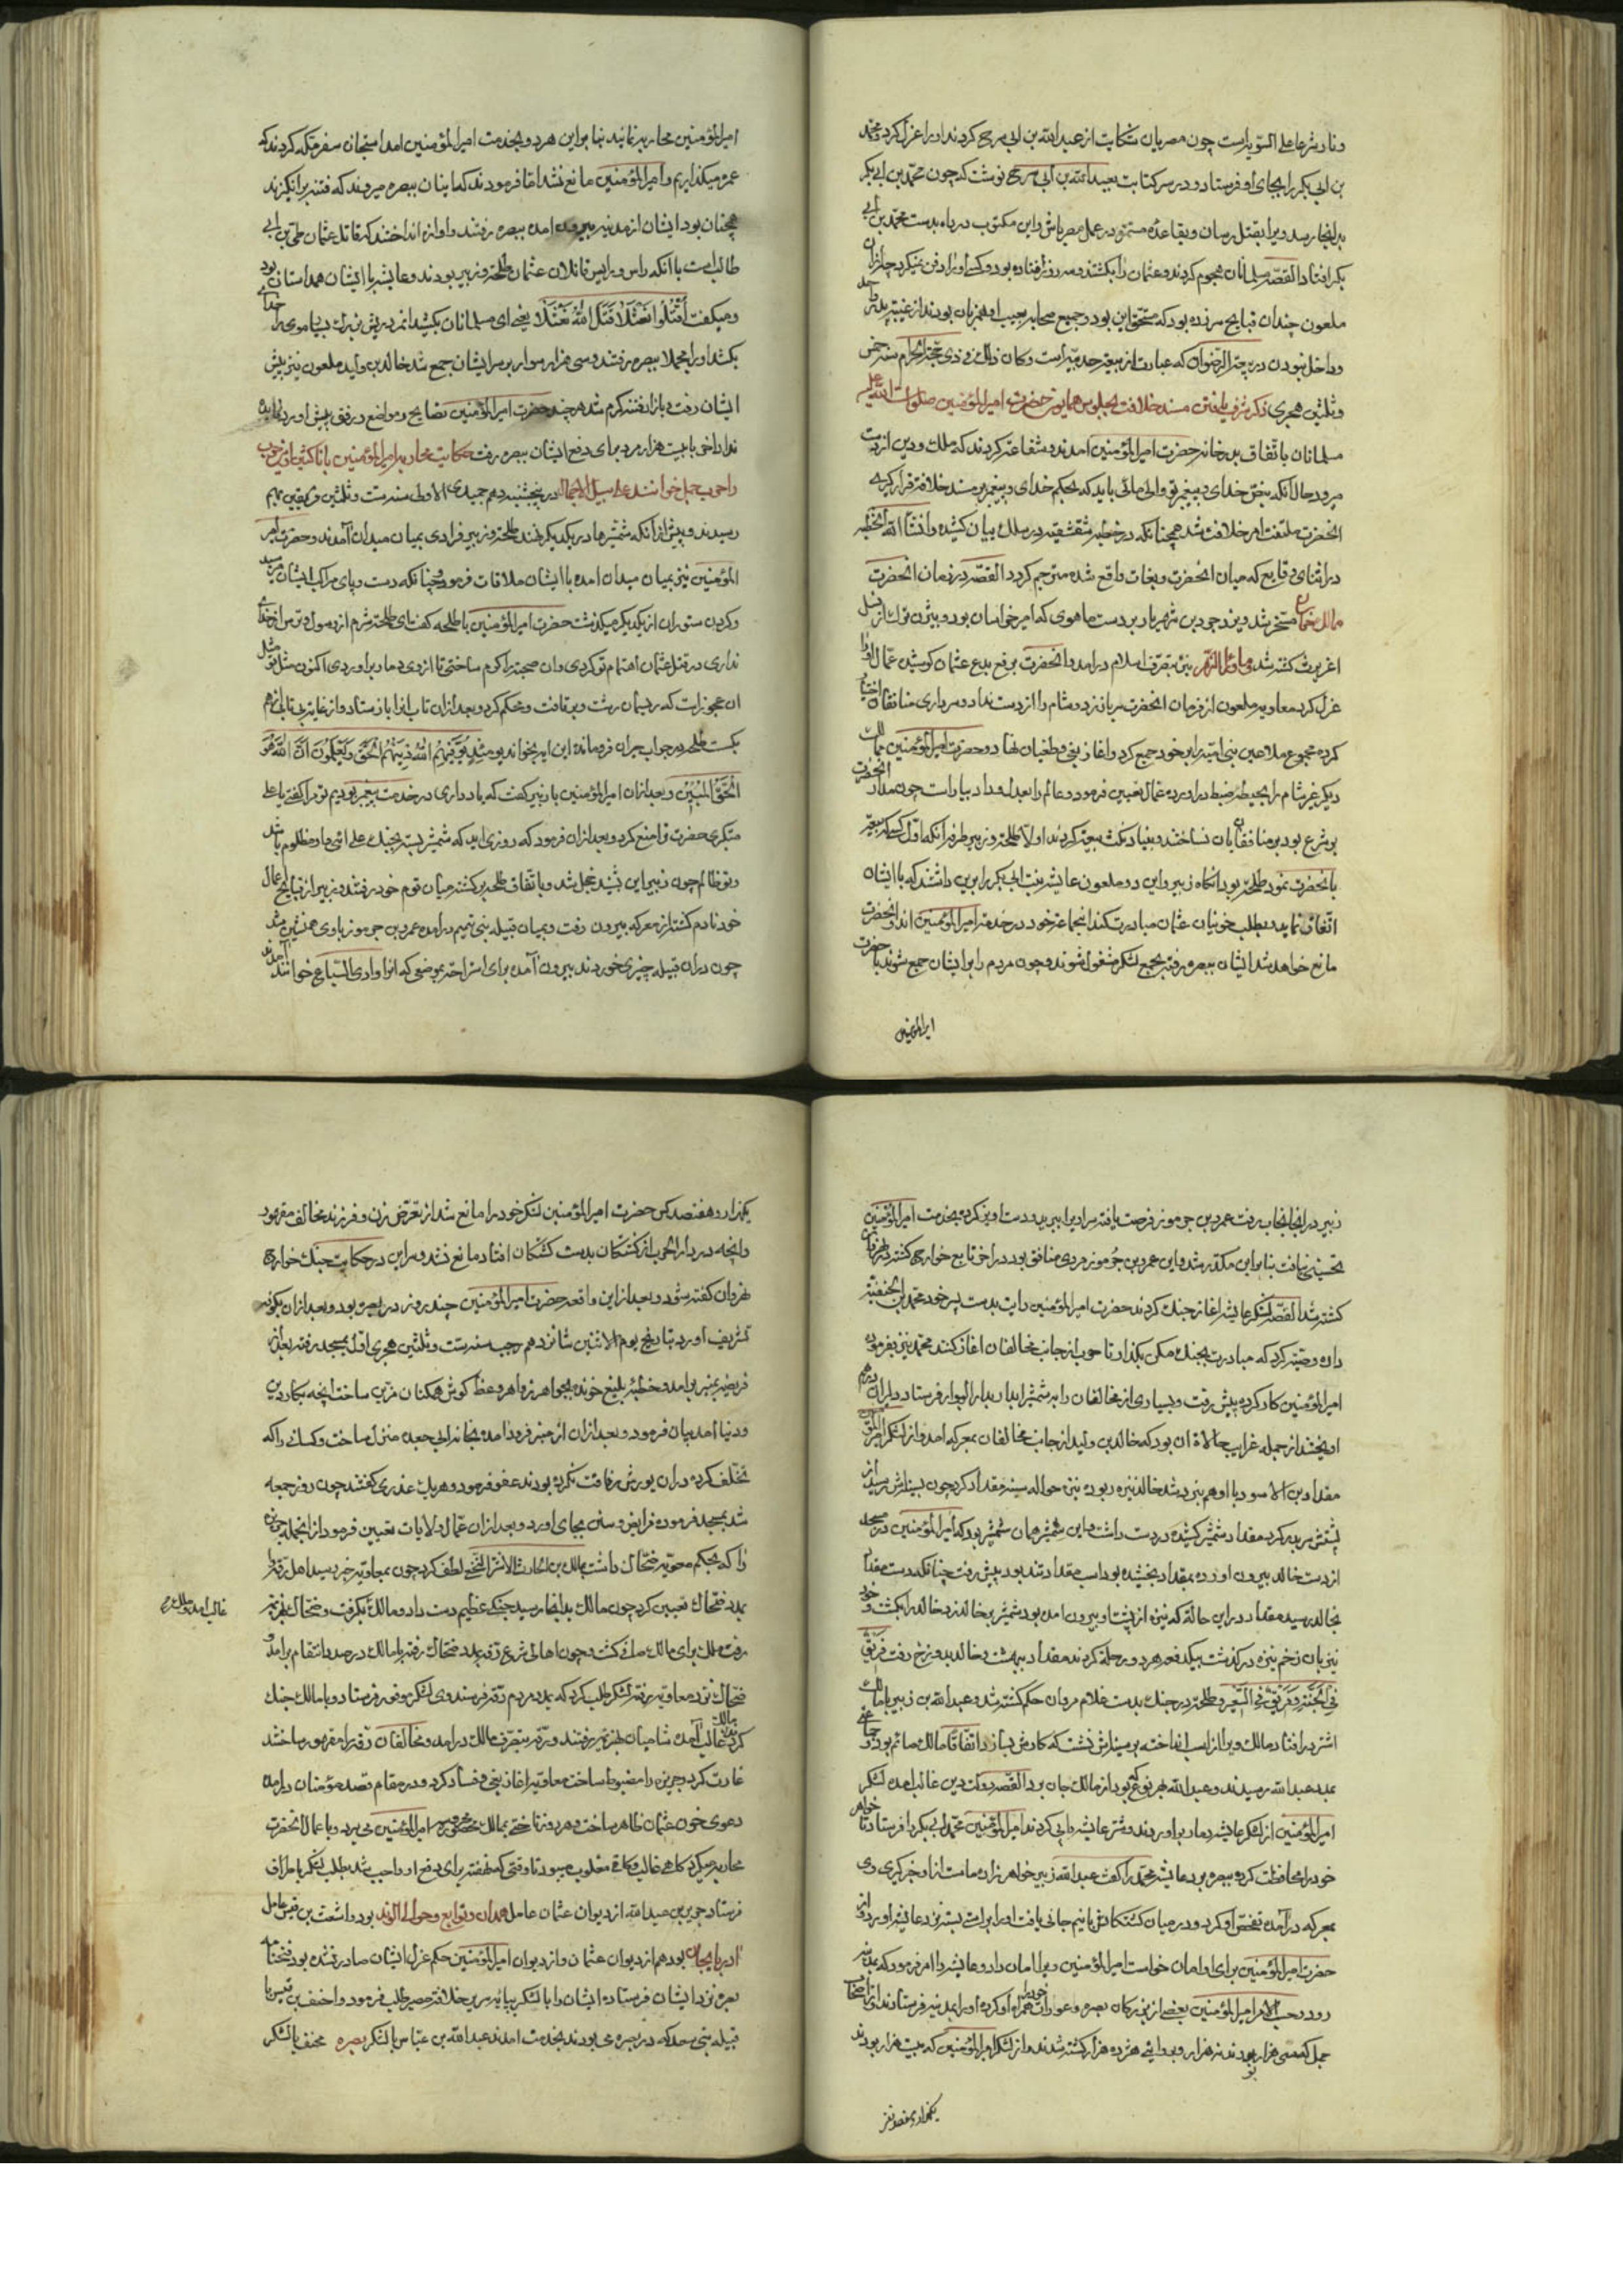 و نار شرعا علی السویه است چون مصریان شکایت از عبد الله بن ابی سرح کردند او را عزل کرد و محمد
بن ابی بکر را بجای او فرستاد و در سر کتابت بعبد الله بن ابی سرح نوشت که چون محمد بن ابی بکر
بدانجا رسد ویرا بقتل رسان و بقاعده مستمر در عمل مصر باش و این مکتوب در راه بدست محمد بن ابی
بکر افتاد القصه مسلمانان هجوم کردند و عثمان را بکشتند و سه روز افتاده بود و کسی او را دفن نمیکرد چه از ان
ملعون چندان قبایح سر زده بود که مستحق این بود و جمیع صحابه بعیب او همزبان بودند از غیبت بدر
و داخل نبودن در بیعة الرضوان که عبارت از بیعت حدیبیه است و کان ذلک فی ذی حجة الحرام سنه خمس
و ثلثین هجری ذکر شرف یافتن مسند خلافت بجلوس همایون حضرت امیر المؤمنین صلوات الله علیه
مسلمانان باتفاق بدر خانه حضرت امیر المؤمنین آمدند و شفاعت کردند که ملک و دین از دست
میرود حال آنکه بنص خدای و پیغمبر تو والی مائی باید که بحکم خدای و پیغمبر بر مسند خلافت قرار گیری
انحضرت ملتفت امر خلافت شد همچنانکه در خطبه شقشقیه در سلک بیان کشیده و انشاء الله الخطبه
در اثنای وقایع که میان انحضرت و بغات واقع شده مترجم گردد القصه در زمان انحضرت
مسخر شد و یزدجرد بن شهریار بر دست ماهوی که امیر خراسان بود و بیژن ترک از نسل
اغریرث کشته شد و ماوراء النهر نیز بتصرف اسلام درامد و انحضرت برفع بدع عثمان کوشید عمال او را
عزل کرد معاویه ملعون از فرمان انحضرت سر باز زد و شام را از دست نداد و سرداری منافقان اختیار
کرده مجموع ملاعین بنی امیه را بر خود جمع کرد و آغاز بغی و طغیان نهاد و حضرت امیر المؤمنین ممالک
دیگر غیر شام را بحیطه ضبط دراورده عمال تعیین فرمود و عالم را بعدل و داد بیاراست چون مدار انحضرت
بر شرع بود بر منافقان نساختند و بنیاد نکث بیعت کردند اولا طلحه و زبیر طرفه انکه اول کسی که بیعت
بانحضرت نمود طلحه بود انکاه زبیر و این دو ملعون عایشه بنت ابی بکر را برین داشتند که با ایشان
اتفاق نماید و بطلب خونیان عثمان مبادرت کند انجماعت خود در خدمت امیر المؤمنین اند و انحضرت
مانع خواهد شد ایشان ببصره رفته بجمع لشکر مشغول شوند و چون مردم را بر ایشان جمع شوند با حضرت
امیر المؤمنین
امیر المؤمنین محاربه نمایند بنا برین هر دو بخدمت امیر المؤمنین امدند استجازه سفر مکه کردند که
عمره میگذاریم و امیر المؤمنین مانع نشد اما فرمودند که اینان ببصره میروند که فتنه برانگیزند
همچنان بود ایشان از مدینه بیرون امده ببصره رفتند و اوازه انداختند که قاتل عثمان علی بن ابی
طالبست با انکه راس و رئیس قاتلان عثمان طلحه و زبیر بودند و عایشه با ایشان همداستان بود
و میگفت اقتلوا نعثلا قتل الله نعثلا یعنی ای مسلمانان بکشید
بکشد او را مجملا ببصره رفتند و سی هزار سوار بر سر ایشان جمع شد خالد بن ولید ملعون نیز پیش
ایشان رفت و بازار فتنه گرم شد هر چند حضرت امیر المؤمنین نصایح و مواضع در رفق پیش اورد فایده
نداد اخر با بیست هزار مرد برای دفع ایشان ببصره رفت حکایت محاربه امیر المؤمنین با ناکثین و این حرب
را حرب جمل خوانند علی سبیل الاجمال در پنجشنبه دهم جمیدی الاولی سنه ست و ثلثین فریقین بهم
رسیدند و پیش از انکه شمشیرها در یکدیگر نهند طلحه و زبیر فرادی بمیان میدان آمدند و حضرت امیر
المؤمنین نیز بمیان میدان امده با ایشان ملاقات فرمود چنانکه دست و پای مراکب ایشان
و گردن ستوران از یکدیگر میگذشت حضرت امیر المؤمنین با طلحه گفت ای طلحه شرم از رسول و ترس از خدا
نداری در قتل عثمان اهتمام تو کردی و ان صحبت را گرم ساختی تا از وی دمار براوردی اکنون مثل تو مثل
ان عجوزه است که ریسمان رشت و بتافت و محکم کرد و بعد از ان تاب انرا باز ستاد و از غایت بی تابی از هم
بکست طلحه در جواب حیران فرو ماند این ایه بخواند یومئذ یوفیهم الله دینهم الحق و یعلمون ان الله هو
الحق المبین و بعد از ان امیر المؤمنین با زبیر گفت که یاد داری در خدمت پیغمبر بودیم تو مرا گفتی یا علی
متکبری حضرت تواضع کرد و بعد از ان فرمود که روزی اید که شمشیر بسته بجنگ علی ائی و او مظلوم باشد
و تو ظالم چون زبیر این بشنید خجل شد و باتفاق طلحه برگشته میان قوم خود رفتند و زبیر از قبایح اعمال
خود نادم گشته از معرکه بیرون رفت و بمیان قبیله بنی تمیم درامده عمرو بن جرموز با وی همنشین شد
چون در ان قبیله چیزی خوردند بیرون آمده برای استراحت بموضعی که انرا وادی السباع خوانند آمدند
زبیر در انجا بخواب رفت عمرو بن جرموز فرصت یافته سر او را ببرید و دست اویز کرده بخدمت امیر المؤمنین
تحسینی نیافت بنا برین مکدر شد و این عمرو بن جرموز مردی منافق بود در اخر تابع خوارج گشته در نهروان
کشته شد القصه لشکر عایشه اغاز جنگ کردند حضرت امیر المؤمنین رایت بدست پسر خود محمد بن الحنفیه
داده وصیت کرد که مبادرت بجنگ مکن بگذار تا حرب از جانب مخالفان اغاز کنند محمد نیز بفرموده
امیر المؤمنین کار کرده پیش رفت و بسیاری از مخالفان را بشمشیر ابدار بدار البوار فرستاد دلیران درهم
اویختند از جمله غرایب حالات ان بود که خالد بن ولید از جانب مخالفان بمعرکه امد و از لشکر امیر المؤمنین
مقداد بن الاسود با او هم نبرد شد خالد نیزه ربوده نیزه حواله سینه مقداد کرد چون بسینه اش رسید از
پشتش سر بدر کرد مقداد شمشیر کشیده در دست داشت و این شمشیر همان شمشیر بود که امیر المؤمنین در مسجد
از دست خالد بیرون اورده بمقداد بخشیده بود اسب مقداد تند بود پیش رفت چنانکه دست مقداد
بخالد رسید مقداد در این حالت که نیزه از پشت او بیرون امده بود شمشیر بر خالد زد خالد را بکشت و خود
نیز بان زخم نیزه درگذشت بیکدفعه هر دو رحلة کردند مقداد ببهشت و خالد بدوزخ رفت فریق
فی الجنة و فریق فی السعیر و طلحه در جنگ بدست غلام مروان حکم کشته شد و عبد الله بن زبیر با مالک
اشتر درافتاد مالک ویرا از اسب انداخته بر سینه اش نشست که کارش بسازد اتفاقا مالک صائم بود و جماعتی
بمدد عبد الله رسیدند و عبد الله بهر نوع بود از مالک جان برد القصه دولت دین غالب امده لشکر
امیر المؤمنین از لشکر عایشه دمار براوردند و شتر عایشه را پی کردند امیر المؤمنین محمد بن ابی بکر را فرستاد تا خواهر
خود را محافظت کرده ببصره برد عایشه محمد را گفت عبد الله زبیر خواهر زاده ماست از او خبر گیری وی
بمعرکه درآمده تفحص او کرد و در میان کشتگانش با نیم جانی یافت او را بر اسب بسته نزد عایشه اورد و از
حضرت امیر المؤمنین برای او امان خواست امیر المؤمنین ویرا امان داد و عایشه را امر فرمود که بمدینه
رود و حسب الامر امیر المؤمنین بعضی از بزرگان بصره و عورات خود را همراه او کرده او را بمدینه فرستادند از اصحاب
جمل که سی هزار بودند نه هزار و بروایتی هژده هزار کشته شدند و از لشکر امیر المؤمنین که بیست هزار بودند
یکهزار و هفتصد نفر
یکهزار و هفتصد کس حضرت امیر المؤمنین لشکر خود را مانع شد از تعرض زن و فرزند مخالف مقهور
و انچه در دار الحرب از کشتگان بدست کشگان افتاد مانع نشد و سر این در حکایت جنگ خوارج
نهروان گفته شود و بعد ازین واقعه حضرت امیر المؤمنین چند روز در بصره بود و بعد از ان بکوفه
تشریف اورد بتاریخ یوم الاثنین شانزدهم رجب سنه ست و ثلثین هجری اول بمسجد رفته بعد از
فریضه بمنبر برامد و خطبه بلیغ خوانده بجواهر زواهر وعظ گوش همکنان مزین ساخت انچه بکار دین
و دنیا آمد بیان فرمود و بعد از ان از منبر فرود امده بخانه ابی جعده منزل ساخت و کسانی را که
تخلف کرده در ان یورش رفاقت نکرده بودند عفو فرمود و هر یک عذری گفتند چون روز جمعه
شد بمسجد فرموده فرایض و سنن بجای اورد و بعد از ان عمال ولایات تعیین فرمود از انجمله جزیره
را که بحکم معویه ضحاک داشت بمالک بن الحارث الاشتر النخعی لطف کرد چون بمعاویه خبر رسید اهل رقه را
بمدد ضحاک تعیین کرد چون مالک بدانجا رسید جنگی عظیم دست داد و مالک بگرفت و ضحاک بهزیمت
رفت ملک برای مالک صافی گشت و چون اهالی شرع رقه بمدد ضحاک رفته با مالک در صدد انتقام برامد و
ضحاک نزد معاویه رفته لشکر طلب کرد که بمدد مردم رقه فرستد وی لشکر موفور فرستاد و با مالک جنگ
کردند مالک غالب آمده شامیان بهزیمت رفتند و رقه بتصرف مالک درامد و مخالفان رقه را مقهور ساختند
غارت کرد جزیره را مضبوط ساخت معاویه اغاز بغی و فساد کرد و در مقام قصد مؤمنان درامده
دعوی خون عثمان ظاهر ساخت و هر روز تاختی بممالک محروسه امیر المؤمنین می برد و با عمال انحضرت
محاربه میکرد گاهی غالب و گاهی مغلوب میبود تا وقتی که دفع او واجب شد بطلب لشکر باطراف
فرستاد جریر بن عبد الله از دیوان عثمان عامل همدان و توابع و حوالی الوند بود و اشعث بن قیس عامل
ادربایجان بود هم از دیوان عثمان و از دیوان امیر المؤمنین حکم عزل ایشان صادر نشده بود فتحنامه
بصره نزد ایشان فرستاده ایشان را با لشکر بپایه سریر خلافت مصیر طلب فرمود و احنف بن قیس با
قبیله بنی سعد که در بصره می بودند بخدمت امدند عبد الله بن عباس با لشکر بصره مخنف با لشکر